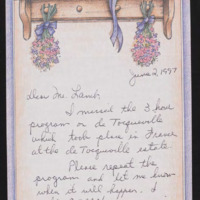 June 2, 1997
Dear Mr. Lamb,
I missed the 3 hour
program on de Tocqueville
which took place in France
at the de Tocqueville estate.
Please repeat the
program and let me know
when it will happen. I